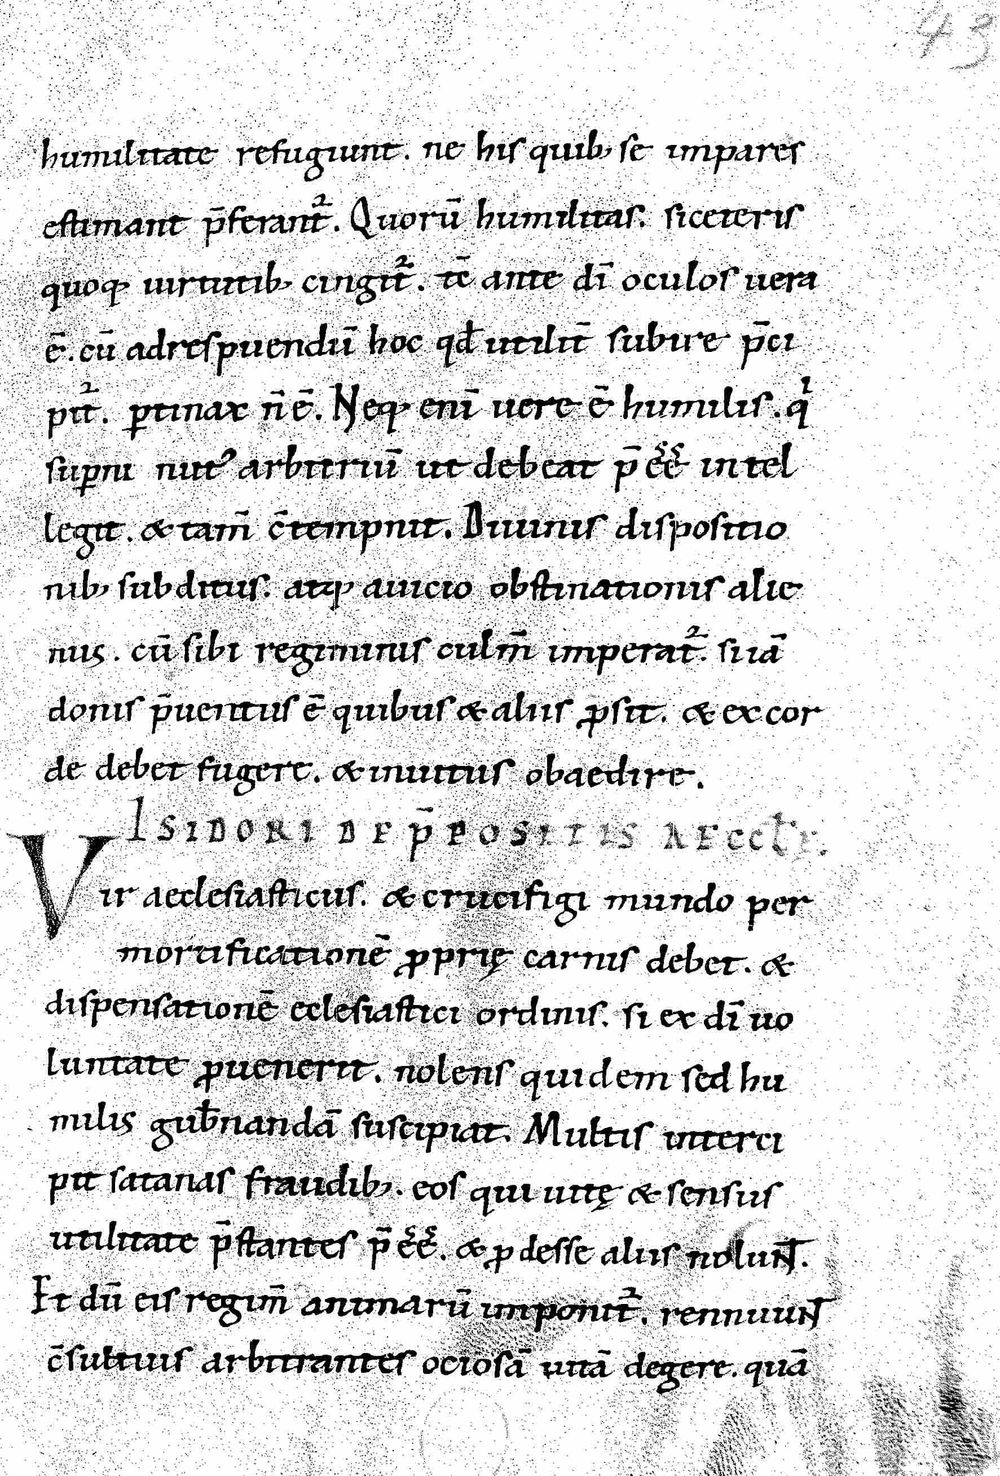 43
humilitate refugiunt. ne his quib; se impares
estimant p̄ferant᷑. Quorū humilitas. si ceteris
quoq; uirtutib; cingit᷑. tc̄ ante dī oculos uera
ē. cū ad respuendū hoc qđ utilit̄ subire p̄ci
pit᷑. ꝑtinax n̄ ē. Neq; enī uere ē humilis. qͥ
suꝑni nut᾽ arbitriū ut debeat p̄ēē intel
legit. & tam̄ c̄tempnit. Diuinis dispositio
nib; subditus. atq; a uicio obstinationis alie
nus. cū sibi regiminis culm̄ imperat᷑. si iā
donis p̄uentus ē quibus & aliis ꝓsit. & ex cor
de debet fugere. & inuitus obaedire.
ISIDORI DE P̄POSITIS AECCL̄E.
Vir aeclesiasticus. & crucifigi mundo per
mortificationē ꝓprię carnis debet. &
dispensationē eclesiastici ordinis. si ex dī uo
luntate ꝓuenerit. nolens quidem sed hu
milis gub̄nandā suscipiat. Multis interci
pit satanas fraudib;. eos qui uitę & sensus
utilitate p̄stantes p̄ēē. & ꝓdesse aliis nolunt.
Et dū eis regim̄ animarū imponit᷑. rennuunt
c̄sultius arbitrantes ociosā uitā degere. quā